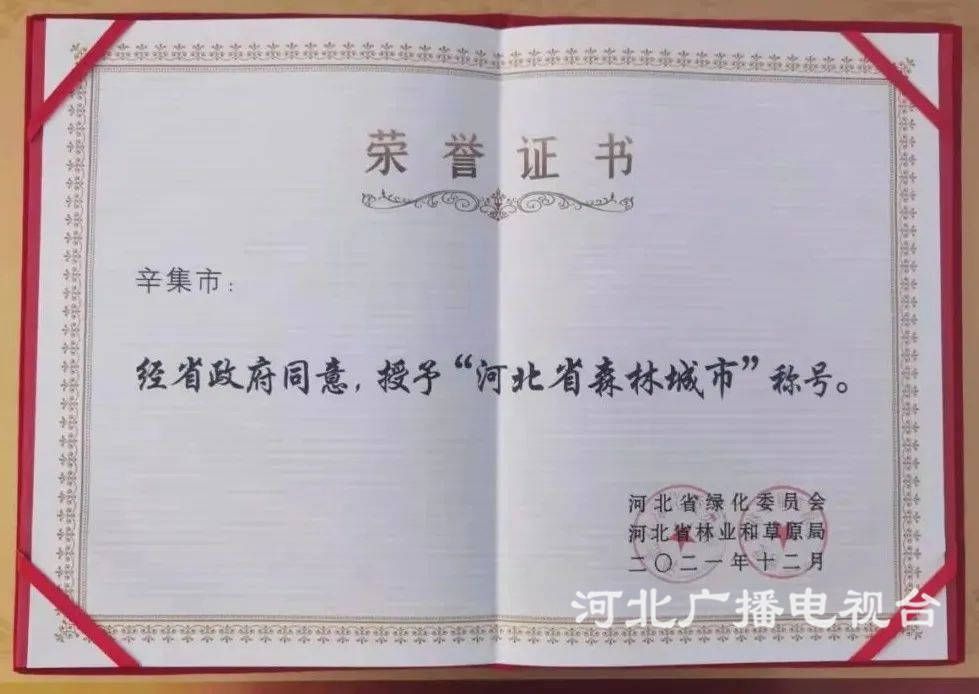 荣誉证书
辛集市：
经省政府同意，授予“河北省森林城市”称号。
河北省绿化委员会
河北省林业和草原局
二〇二一年十二月
河北广播电视台